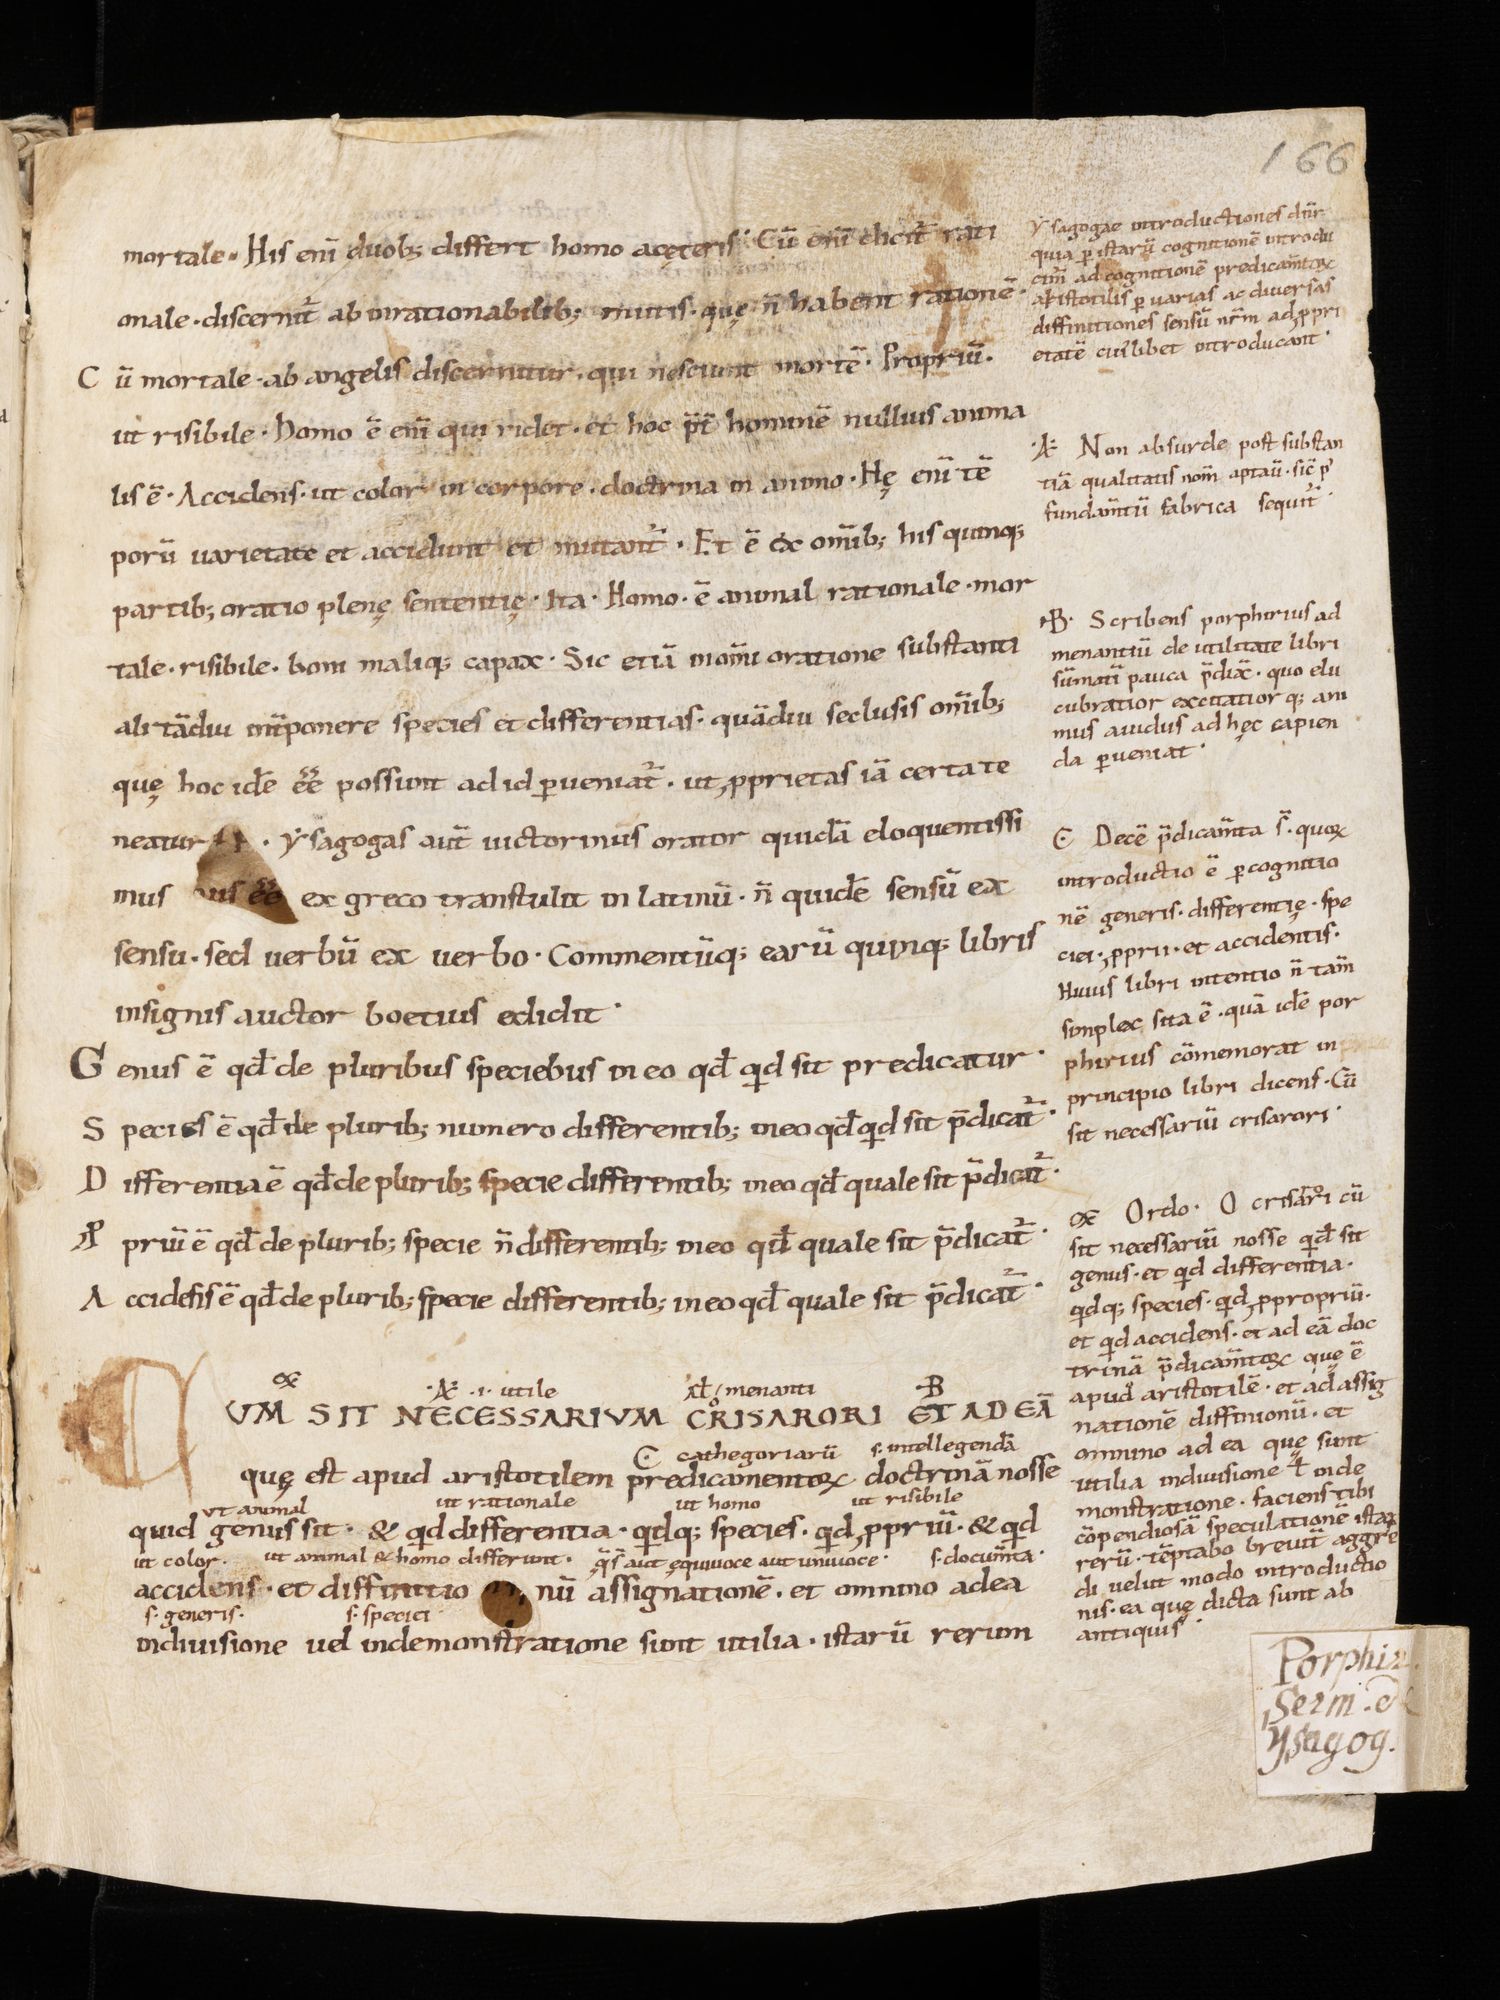 166
mortale. His eni̅ duob; differt homo acęteris. Cu̅ eni̅ dicit᷑ rati
onale. discernit᷑ ab inrationabilib; mutis. quę n̅ habent ratione̅.
Cu̅ mortale. ab angelis discernitur. qui nesciunt morte̅. Propriu̅.
ut risibile. homo e̅ eni̅ qui ridet. et hoc p̅t̅ homine̅ nullius anima
lis e̅. Accidens. ut color in corpore. doctrina in animo. Hę eni̅ te̅
poru̅ uarietate et accidunt et mutant᷑. Et e̅ ex om̅ib; his quinq;
partib; oratio plenę sententię. Ita. Homo. e̅ animal rationale. mor
tale. risibile. boni maliq; capax. Sic etia̅ in om̅i oratione substanti
ali ta̅diu int̅ponere species et differentias. qua̅diu seclusis om̅ib;
quę hoc ide̅ e̅e̅ possunt ad id ꝑueniat᷑. ut ꝓprietas ia̅ certa te
neatur. Ysagogas aut̅ uictorinus orator quida̅ eloquentissi
mus ex greco transtulit in latinu̅. n̅ quide̅ sensu̅ ex
sensu. sed uerbu̅ ex uerbo. Commentu̅q; earu̅ quinq; libris
insignis auctor boetius edidit.
Genus e̅ qđ de pluribus speciebus in eo qđ qid sit predicatur.
Species e̅ qđ de plurib; numero differentib; in eo qđ qid sit p̅dicat᷑.
Differentia e̅ qđ de plurib; specie differentib; in eo qđ quale sit p̅dicat᷑.
Ꝓpriu̅ e̅ qđ de plurib; specie n̅ differentib; in eo qđ quale sit p̅dicat᷑.
Accidens e̅ qđ de plurib; specie differentib; in eo qđ quale sit p̅dicat᷑.
·A· .i. utile menanti B
CUM SIT NECESSARIUM CRISARORI ET AD EA̅
C cathegoriaru̅ s. intellegenda̅
quę est apud aristotilem predicamentoꝝ doctrina̅ nosse
ut animal ut rationale ut homo ut risibile
quid genus sit. & qid differentia. qidq; species. qid ꝓpriu̅. & qid
ut color. ut animal & homo differunt. aut ęquiuoce aut uniuoce. s. docum̅ta.
accidens. et diffinitio nu̅ assignatione̅. et omnino ad ea
s. generis. s. speciei
in diuisione uel in demonstratione sunt utilia. istaru̅ rerum
Ysagogae introductiones dn̅r
quia ꝑ istaru̅ cognitione̅ introdu
cim̅ ad cognitione̅ predicam̅toꝝ
aristotilis ꝑ uarias ac diuersas
diffinitiones sensu̅ nr̅m ad ꝓpri
etate̅ cui᷒libet introducant.
·A· Non absurde post substan
tia̅ qualitatis nom̅ aptau̅. sic̅ p᷒
fundam̅tu̅ fabrica sequit᷑.
·B· Scribens porphirius ad
menantiu̅ de utilitate libri
su̅mati̅ pauca p̅dix̅. quo elu
cubratior excitatiorq; ani
mus auidus ad hęc capien
da ꝑueniat.
C Dece̅ p̅dicam̅ta s̅. quoꝝ
introductio e̅ ꝑ cognitio
ne̅ generis. differentię. spe
ciei. ꝓprii. et accidentis.
Huius libri intentio n̅ tam̅
simplex sita e̅. qua̅ ide̅ por
phirius co̅memorat in
principio libri dicens. Cu̅
sit necessariu̅ crisarori.
Ordo. O crisarori cu̅
sit necessariu̅ nosse qid sit
genus. et qid differentia.
qidq; species. qid ꝓpropriu̅.
et qid accidens. et ad ea̅ doc
trina̅ p̅dicam̅toꝝ quę e̅
apud aristotile̅. et ad assig
natione̅ diffinionu̅. et
omnino ad ea quę sunt
utilia in diuisione ł in de
monstratione. faciens tibi
co̅pendiosa̅ speculatione̅ istaꝝ
reru̅. te̅ptabo breuit̅ aggre
di uelut modo introductio
nis. ea quę dicta sunt ab
antiquis.
Porphir.
Serm. &
Ysagog.